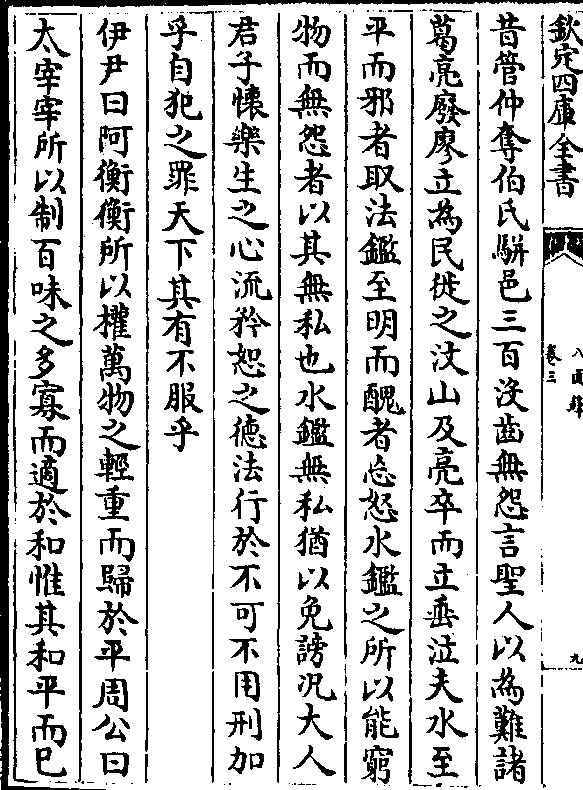 欽定四庫全書
八面鋒
卷三
九
昔管仲奪伯氏駢邑三百没齒無怨言聖人以為難諸
葛亮廢廖立為民徙之汶山及亮卒而立垂泣夫水至
平而邪者取法鑑至明而醜者忘怒水鑑之所以能窮
物而無怨者以其無私也水鑑無私猶以免謗况大人
君子懐樂生之心流矜恕之徳法行於不可不用刑加
乎自犯之罪天下其有不服乎
伊尹曰阿衡衡所以權萬物之輕重而歸於平周公曰
太宰宰所以制百味之多寡而適於和惟其和平而已